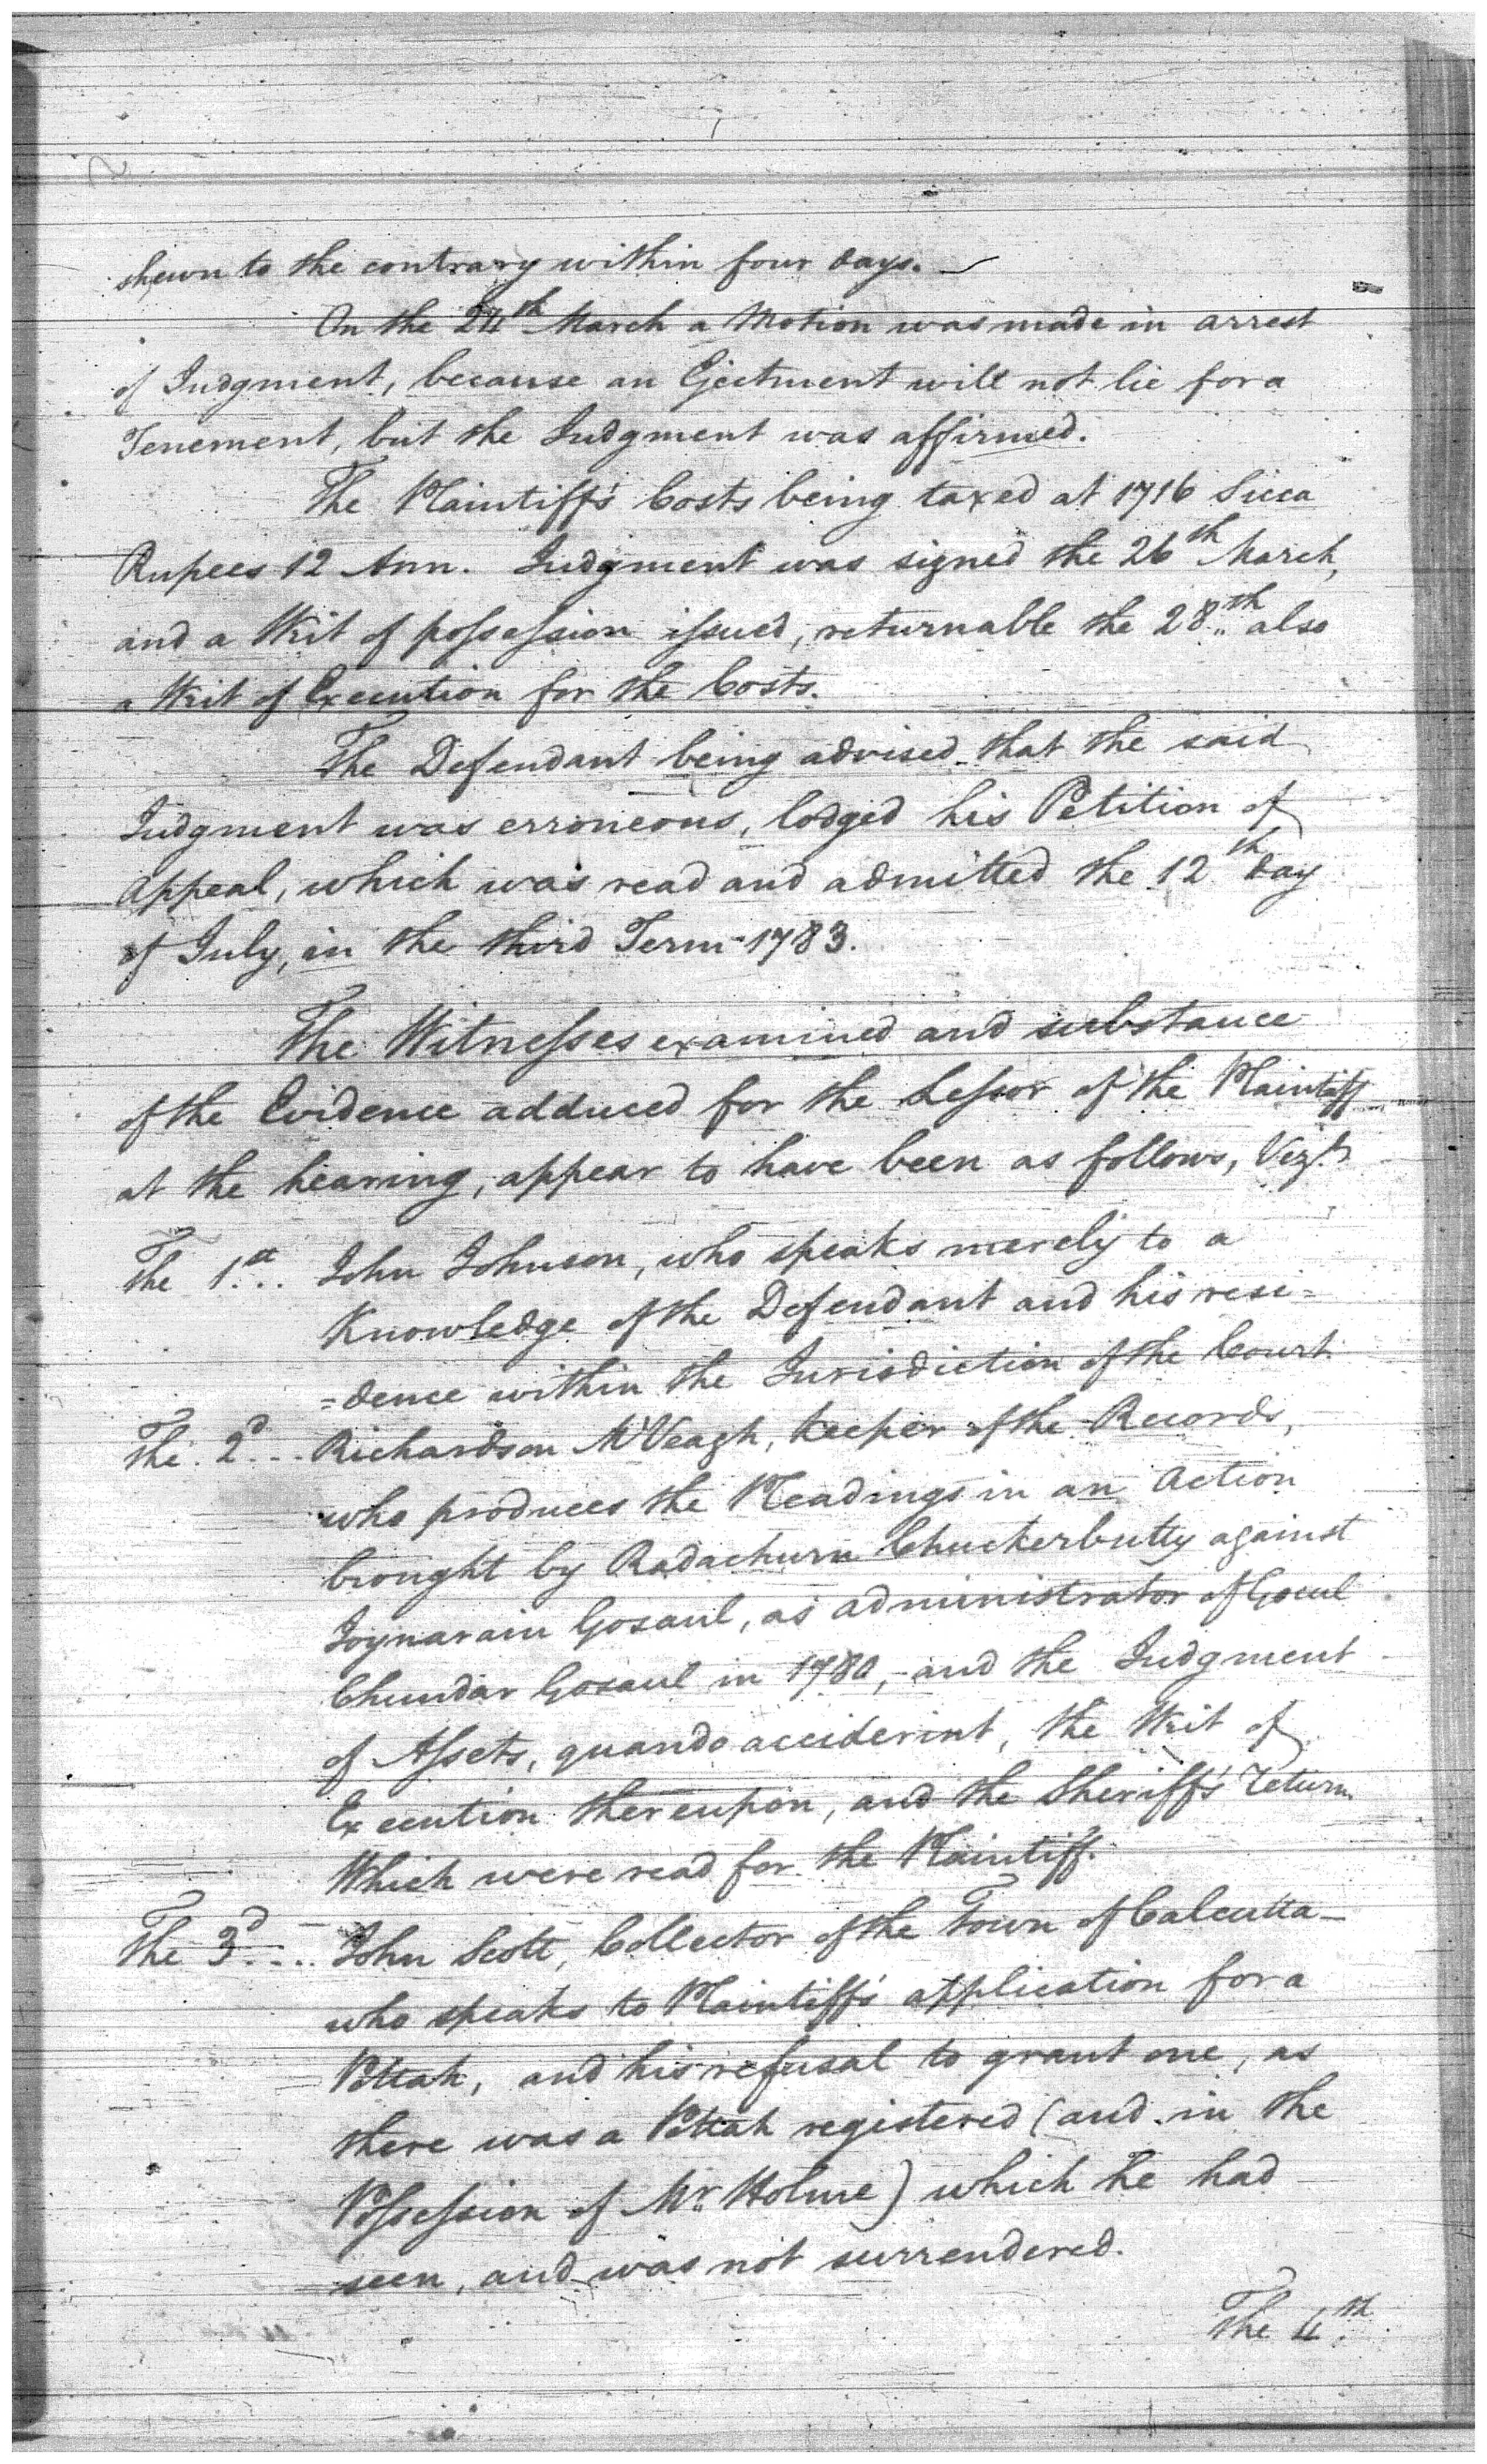 shewn to the contrary within four days.
On the 24th March a Motion was made in arrest
of Judgment, because an Ejectment will not lie for a
Tenement, but the Judgment was affirmed.
The Plaintiff's Costs being taxed at 1716 Sicca
Rupees 12 Ann. Judgment was signed the 26th March,
and a Writ of possession issued, returnable the 28th also
a Writ of Execution for the Costs.
The Defendant being advised that the said
Judgment was erroneous, lodged his Petition of
Appeal, which was read and admitted the 12th Day
of July, in the third Term 1783.
The Witnesses examined and substance
of the Evidence adduced for the Lessor of the Plaintiff
at the hearing, appear to have been as follows, Vizt.
The 1st... John Johnson, who speaks merely to a
Knowledge of the Defendant and his resi=
=dence within the Jurisdiction of the Court
The 2d... Richardson McVeagh, Keeper of the Records,
who produces the Pleadings in an Action
brought by Radachurn Chuckerbutty against
Joynarain Gosaul, as administrator of Gocul
Chundar Gosaul in 1780, and the Judgment
of Assets, quando acciderint, the Writ of
Execution thereupon, and the Sheriff's Return
Which were read for the Plaintiff.
The 3d.... John Scott, Collector of the Town of Calcutta
who speaks to Plaintiff's application for a
Pottah, and his refusal to grant one, as
there was a Pottah registered (and in the
Possession of Mr. Holme) which he had
seen, and was not surrendered.
The 4th.